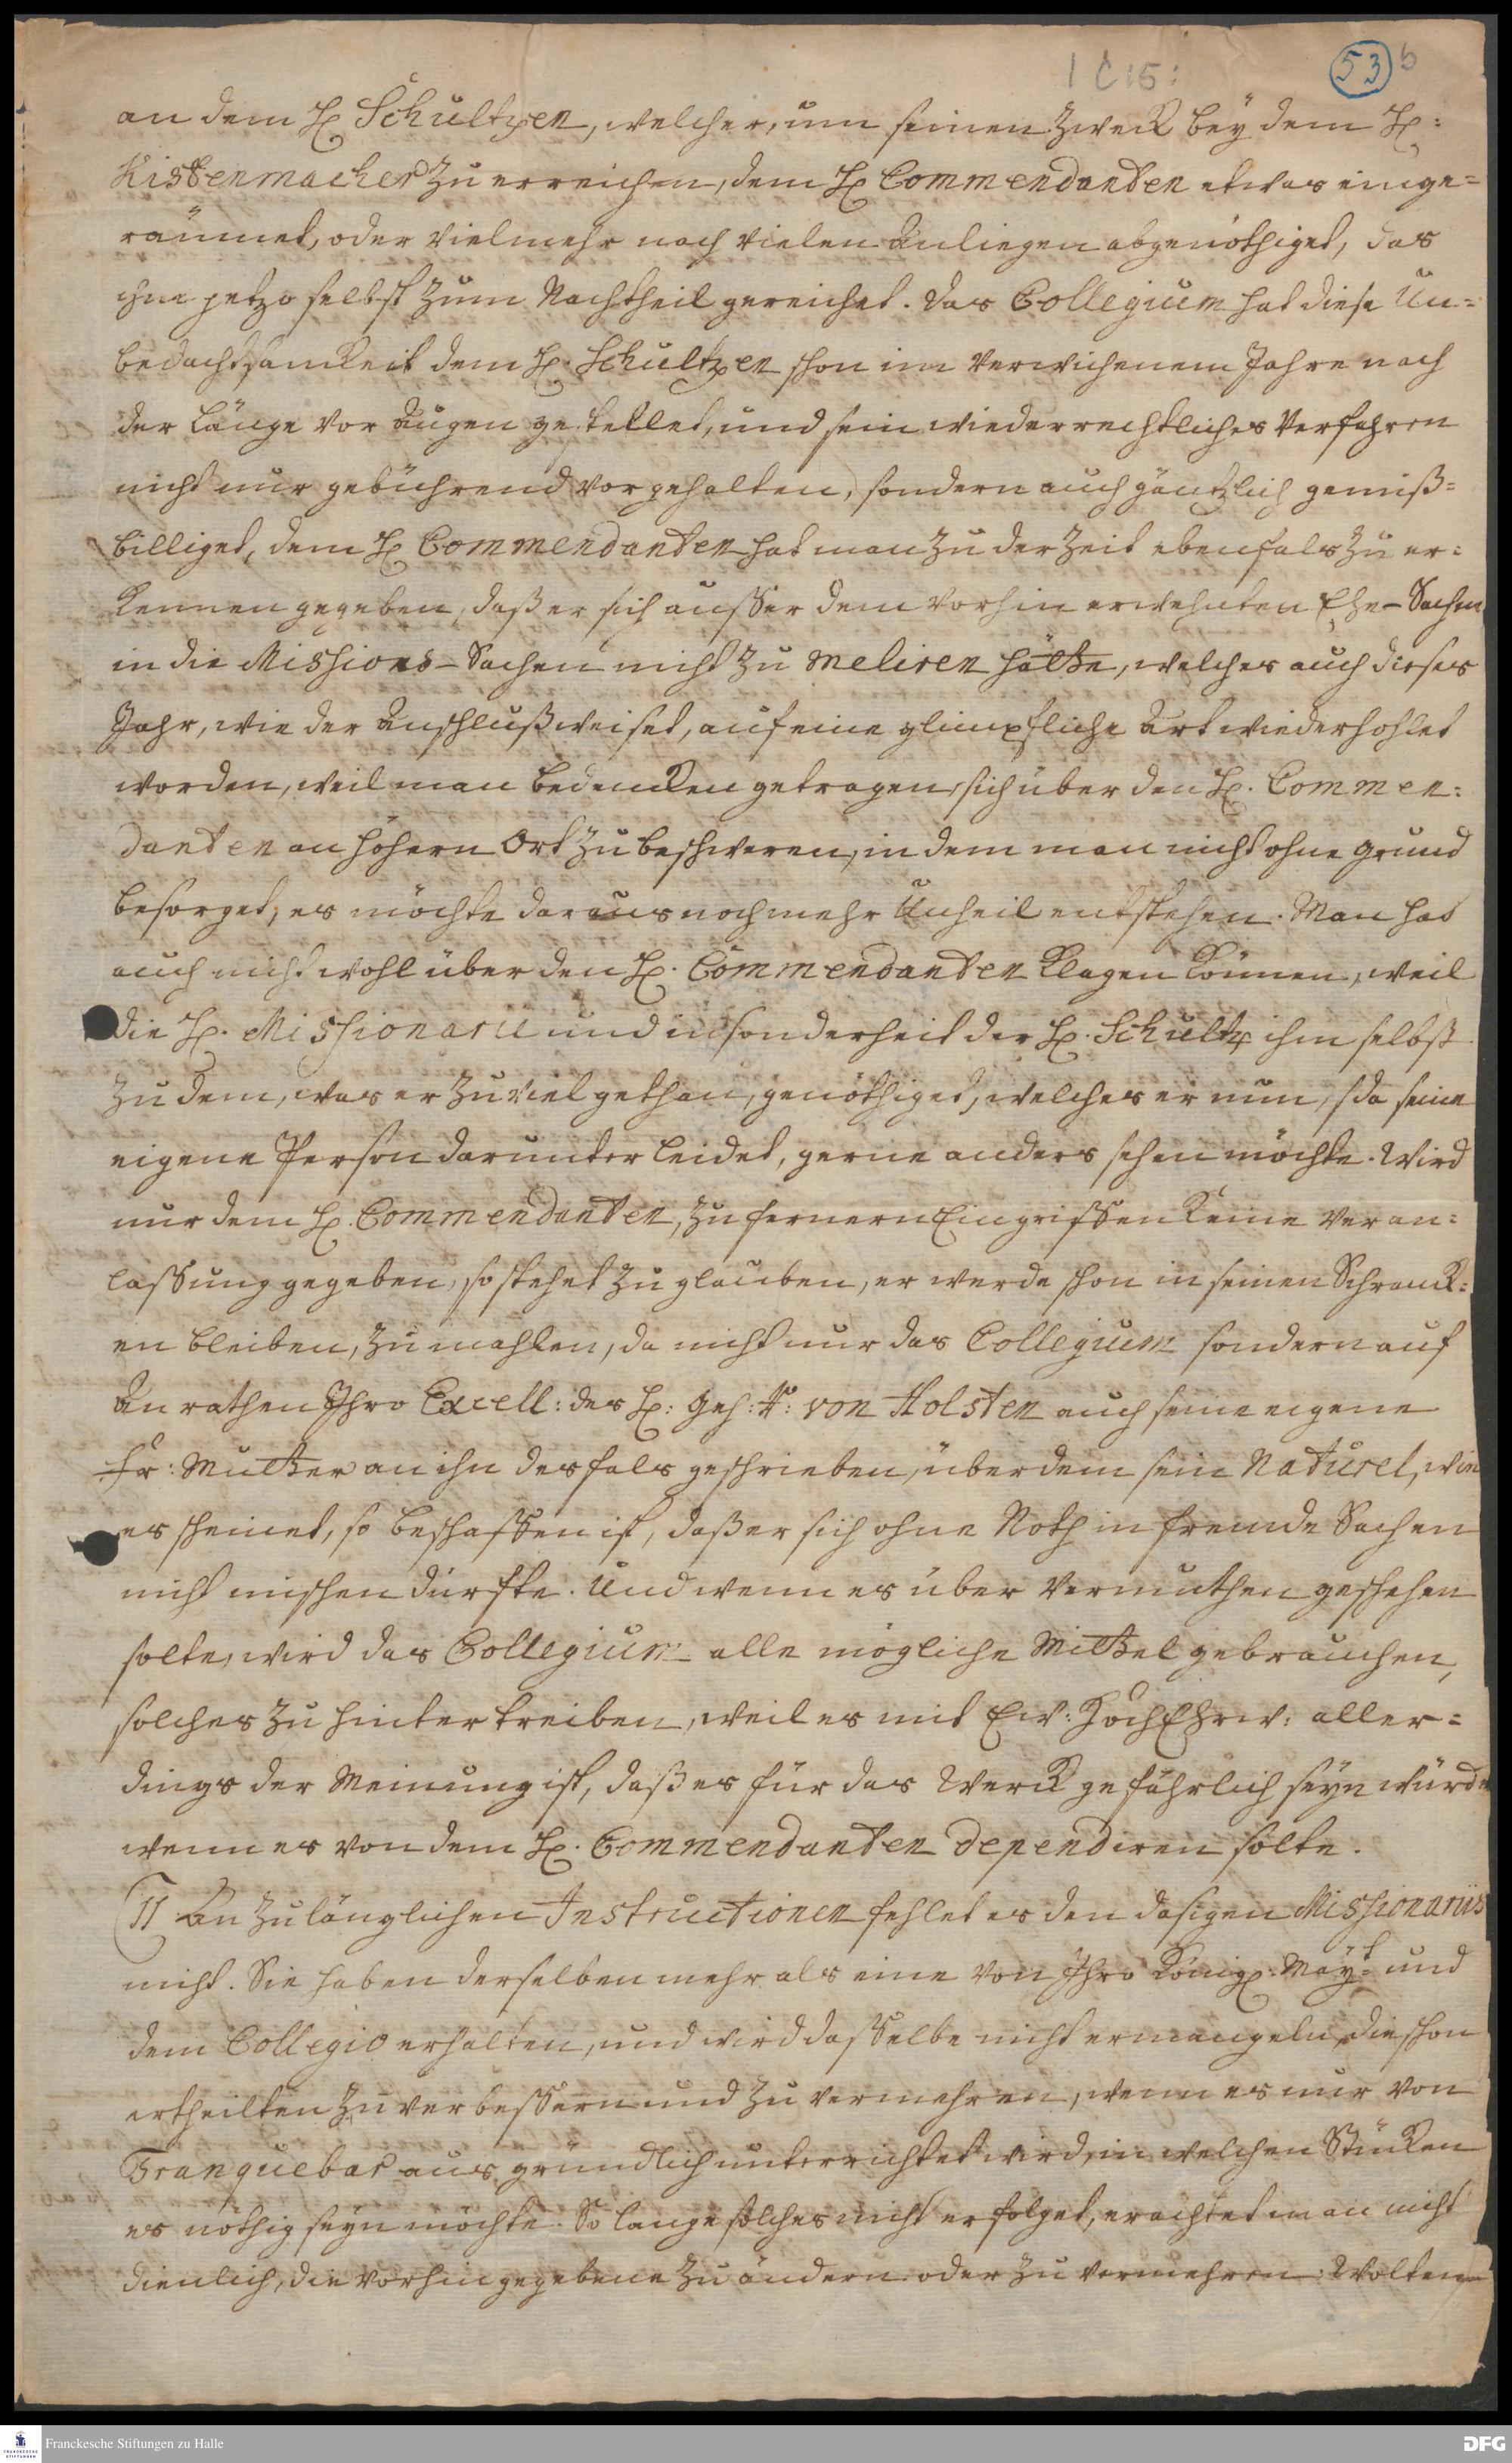 1 C 15:
53 b
an dem H. Schultzen, welcher, um seinen Zweck bey dem H:
Kistenmacher zu erreichen, dem H. Commendanten etwas einge=
räumet, oder vielmehr nach vielen Anliegen abgenöthiget, das
ihm jetzo selbst zum Nachtheil gereichet. Das Collegium hat diese Un=
bedachtsamkeit dem H. Schultzen schon im verwichenem Jahre nach
der Länge vor Augen gestellet, und sein wiederrechtliches Verfahren
nicht nur gebührend vorgehalten, sondern auch gäntzlich gemiß=
billiget, dem H. Commendanten hat man zu der Zeit ebenfals zu er=
kennen gegeben, daß er sich ausser dem vorhin erwehnten Ehe-Sachen
in die Missions-Sachen nicht zu meliren hätte, welches auch dieses
Jahr, wie der Anschluß weiset, auf eine glimpfliche Art wiederhohlet
worden, weil man Bedencken getragen, sich über den H. Commen=
danten an höhern Ort zu beschweren, in dem man nicht ohne Grund
besorget, es möchte daraus noch mehr Unheil entstehen. Man hat
auch nicht wohl über den H. Commendanten klagen können, weil
die H. Missionarii und insonderheit der H. Schultz ihn selbst
zu dem, was er zu viel gethan, genöthiget, welches er nun, da seine
eigene Person darunter leidet, gerne anders sehen möchte. Wird
nur dem H. Commendanten, zu fernern Eingriffen keine Veran=
lassung gegeben, so stehet zu glauben, er werde schon in seinen Schranck=
en bleiben, zu mahlen, da nicht nur das Collegium sondern auf
Anrathen Ihro Excell: des H: Geh: R: von Holsten auch seine eigene
Fr: Mutter an ihn desfals geschrieben, über dem sein Naturel, wie
es scheinet, so beschaffen ist, daß er sich ohne Noth in fremde Sachen
nicht mischen dürfte. Und wenn es über Vermuthen geschehen
solte, wird das Collegium alle mögliche Mittel gebrauchen,
solches zu hintertreiben, weil es mit Ew: HochEhrw: aller=
dings der Meinung ist, daß es für das Werck gefährlich seyn würde
wenn es von dem H. Commendanten dependiren solte.
11 An zulänglichen Instructionen fehlet es den dasigen Missionariis
nicht. Sie haben derselben mehr als eine von Ihro Königl: Mayt: und
dem Collegio erhalten, und wird dasselbe nicht ermangeln, die schon
ertheilten zu verbessern und zu vermehren, wenn es nur von
Tranquebar aus gründlich unterrichtet wird, in welchen Stücken
es nöthig seyn möchte. So lange solches nicht erfolget, erachtet man nicht
dienlich, die vorhin gegebene zu ändern oder zu vermehren. Wolten
Franckesche Stiftungen zu Halle
DFG